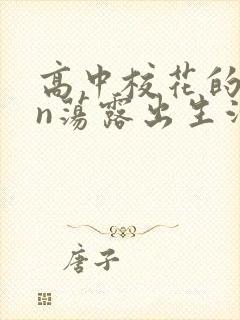 高中校花的
n荡露出生活
唐子